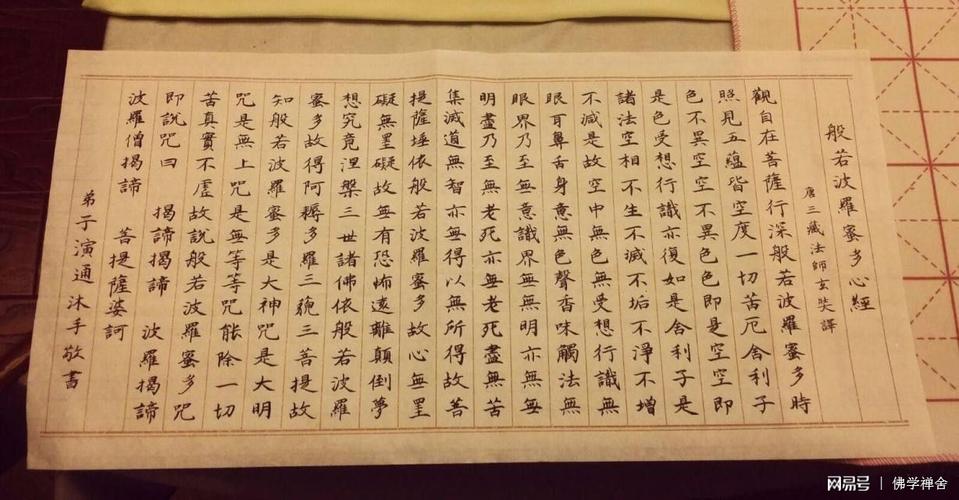 般若波羅蜜多心經
唐三藏法師玄奘譯
觀自在菩薩行深般若波羅蜜多時
照見五蘊皆空度一切苦厄舍利子
色不異空空不異色色即是空空即
是色受想行識亦復如是舍利子是
諸法空相不生不滅不垢不淨不增
不減是故空中無色無受想行識無
眼耳鼻舌身意無色聲香味觸法無
眼界乃至無意識界無無明亦無無
明盡乃至無老死亦無老死盡無苦
集滅道無智亦無得以無所得故菩
提薩埵依般若波羅蜜多故心無罣
礙無罣礙故無有恐怖遠離顛倒夢
想究竟涅槃三世諸佛依般若波羅
蜜多故得阿耨多羅三藐三菩提故
知般若波羅蜜多是大神咒是大明
咒是無上咒是無等等咒能除一切
苦真實不虛故說般若波羅蜜多咒
即說咒曰 揭諦揭諦 波羅揭諦
波羅僧揭諦 菩提薩婆訶
弟子演通沐手敬書
网易号 | 佛学禅舍